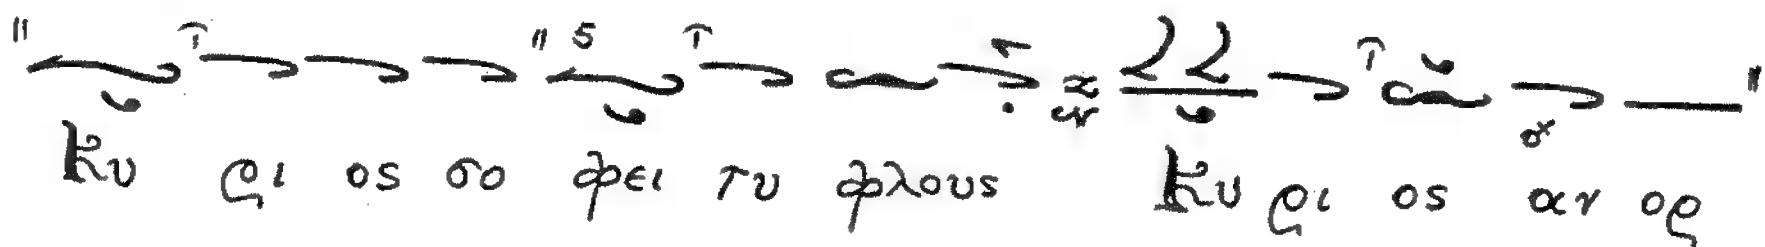 Κυ ρι ος σο φει τυ φλους Κυ ρι ος αν ορ